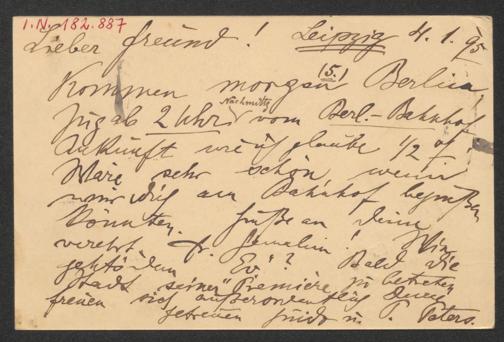 I.N. 182.887
Lieber Freund! Leipzig 4.1.95
Kommen morgen (5.1) Berlin
Zug ab 2 Uhr Nachmittg vom Berl.-Bahnhof
Ankunft wie ich glaube 1/2
Wäre sehr schön wenn
wir dich am Bahnhof begrüßen
könnten. Grüße an deine
verehrt. Fr. Gemalin!
Bald die
Stadt seiner Première zu betreten
freuen sich außerordentlich deine
getreuen u. Peters.